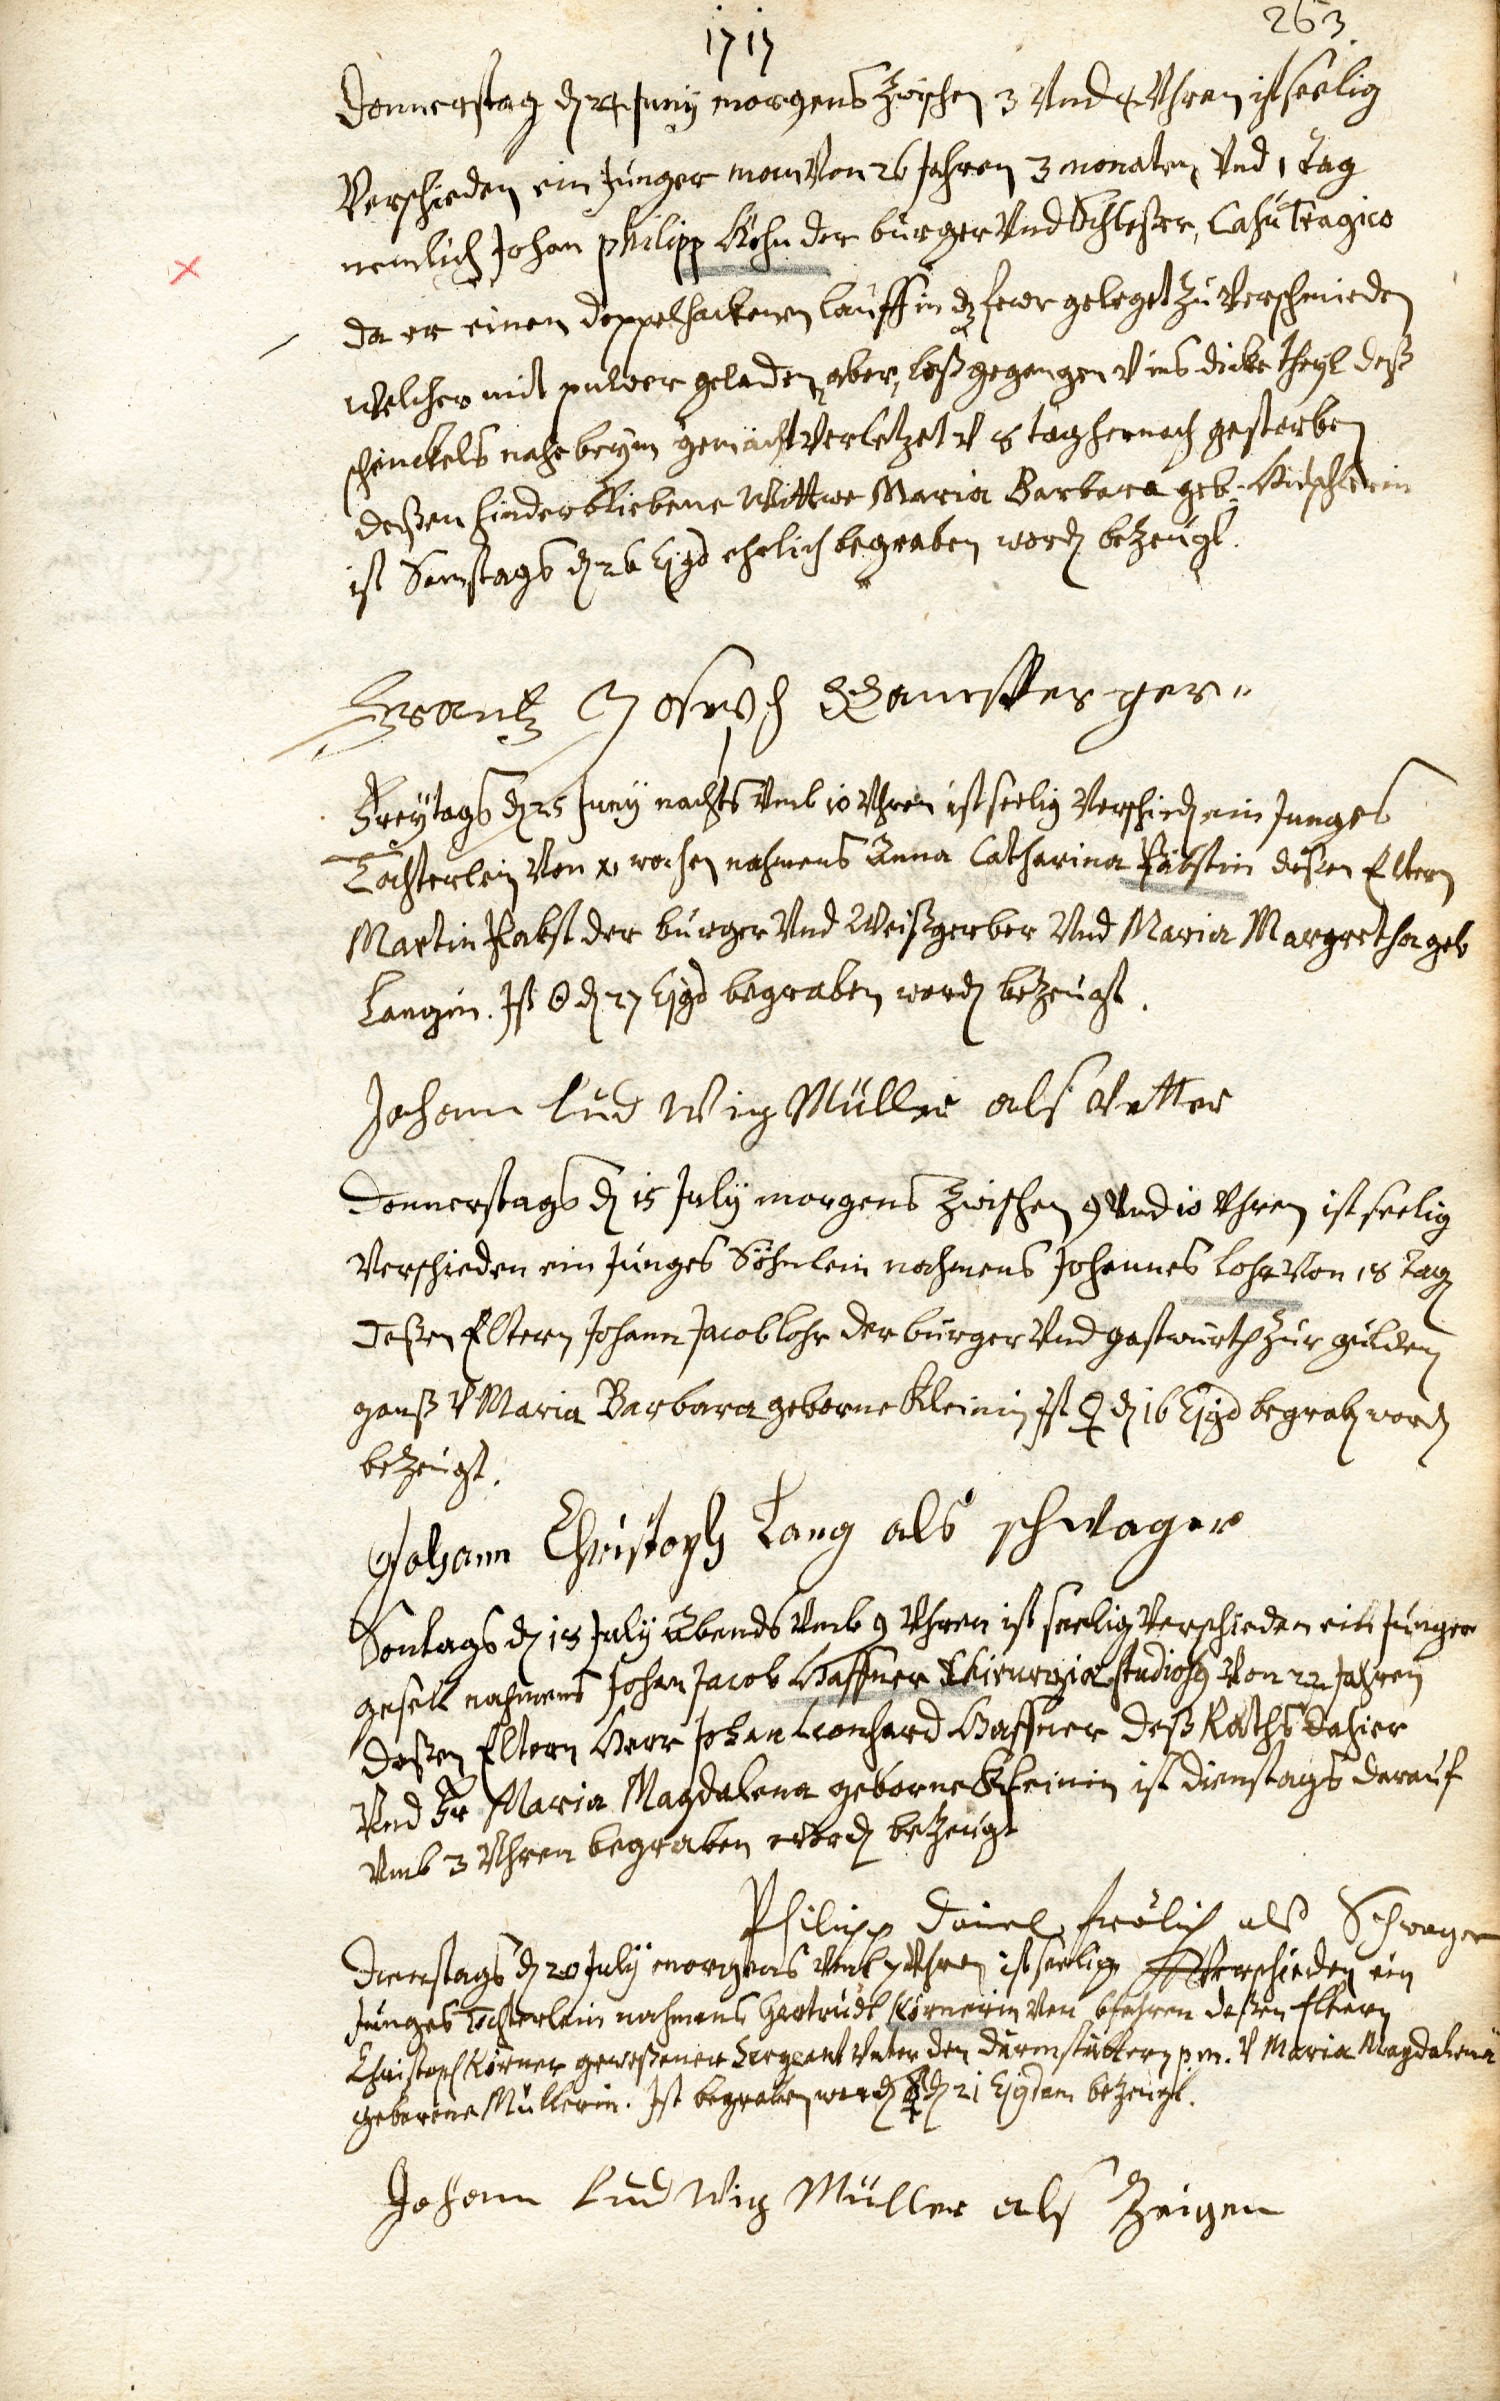 263.
1717
Donnerstag d 24 Juny morgens zwischen 3 Und 4 Uhren ist seelig
Verschieden ein Junger man Von 26 Jahren 3 monaten Und 1 tag
nemlich Johan philipp Köhn der burger Und Schlosser, Casu tragico
da er einen doppelhackenen lauff in dz feur geleget zu Verschmieden
Welcher mit pulver geladen aber, loß gegangen V ins dicke theyl deß
schenckels nahe beym gemächt Verletzet V 8 tag hernach gestorben
deßen hinderbliebene Wittwe Maria Barbara geb.
ist Samstags d 26 Ejgd ehrlich begraben word bezeugt.
Frantz Joseph
Freytags d 25 Juny nachts Umb 10 Uhren ist seelig Verschied ein Junges
Töchterlein Von wochen nahmens Anna Catharina Pabstin deßen Eltern
Martin Pabst der burger Und Weißgerber Und Maria Margretha geb
Langin. Ist ☉ d 27 Ejgd begraben word bezeugt.
Johann Ludwig Müller als Vetter
Donnerstags d 15 July morgens zwischen 9 Und 10 Uhren ist seelig
Verschieden ein Junges Söhnlein nahmens Johannes Lohr Von 18 tag
deßen Eltern Johann Jacob Lohr der burger Und gastwürth zur gülden
ganß V Maria Barbara geborne Kleinin Ist ♀ d 16 Ejgd begrab word
bezeugt.
Johann Christoph Lang als schwager
Sontags d 18 July Abends Umb 9 Uhren ist seelig Verschieden ein Junger
gesell nahmens Johan Jacob Haffner Chirurgiæ studios9 Von 22 Jahren
deßen Eltern Herr Johan Leonhard Haffner deß Raths dahier
Und Fr Maria Magdalena geborne Kleinin ist dienstags darauf
Umb 3 Uhren begraben word bezeugt
Philipp Daniel Frölich als Schwager
Dienstags d 20 July morgens Umb 7 Uhren ist seelig Verschieden ein
Junges Töchterlein nahmens Gertrudt Körnerin Von 6 Jahren deßen Eltern
Christoph Körner geweßener Sergeant Unter den p.m. V Maria Magdalena
geborene Müllerin. Ist begraben word ☿ d 21 Ejgdem bezeugt.
Johann Ludwig Müller als Zeigen